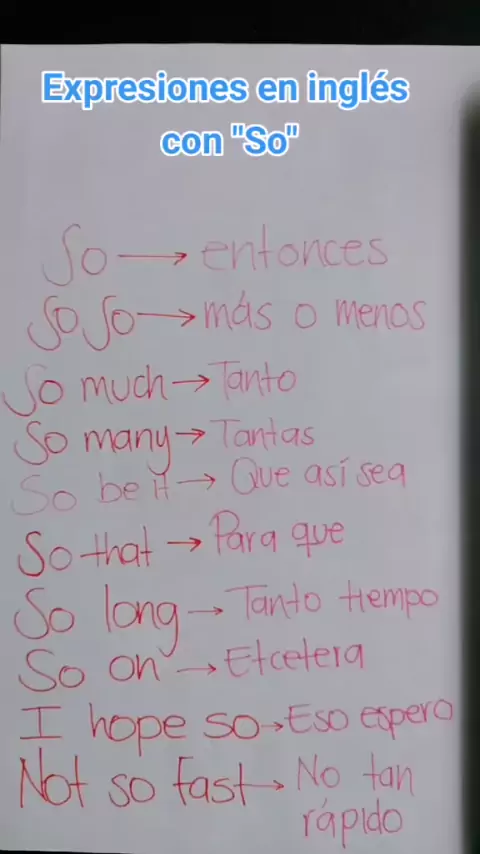 Expresiones en inglés
con "So"
So → entonces
So So → más o menos
So much → Tanto
So many → Tantas
So be it → Que así sea
So that → Para que
So long → Tanto tiempo
So on → Etcetera
I hope so → Eso espero
Not so fast → No tan
rápido